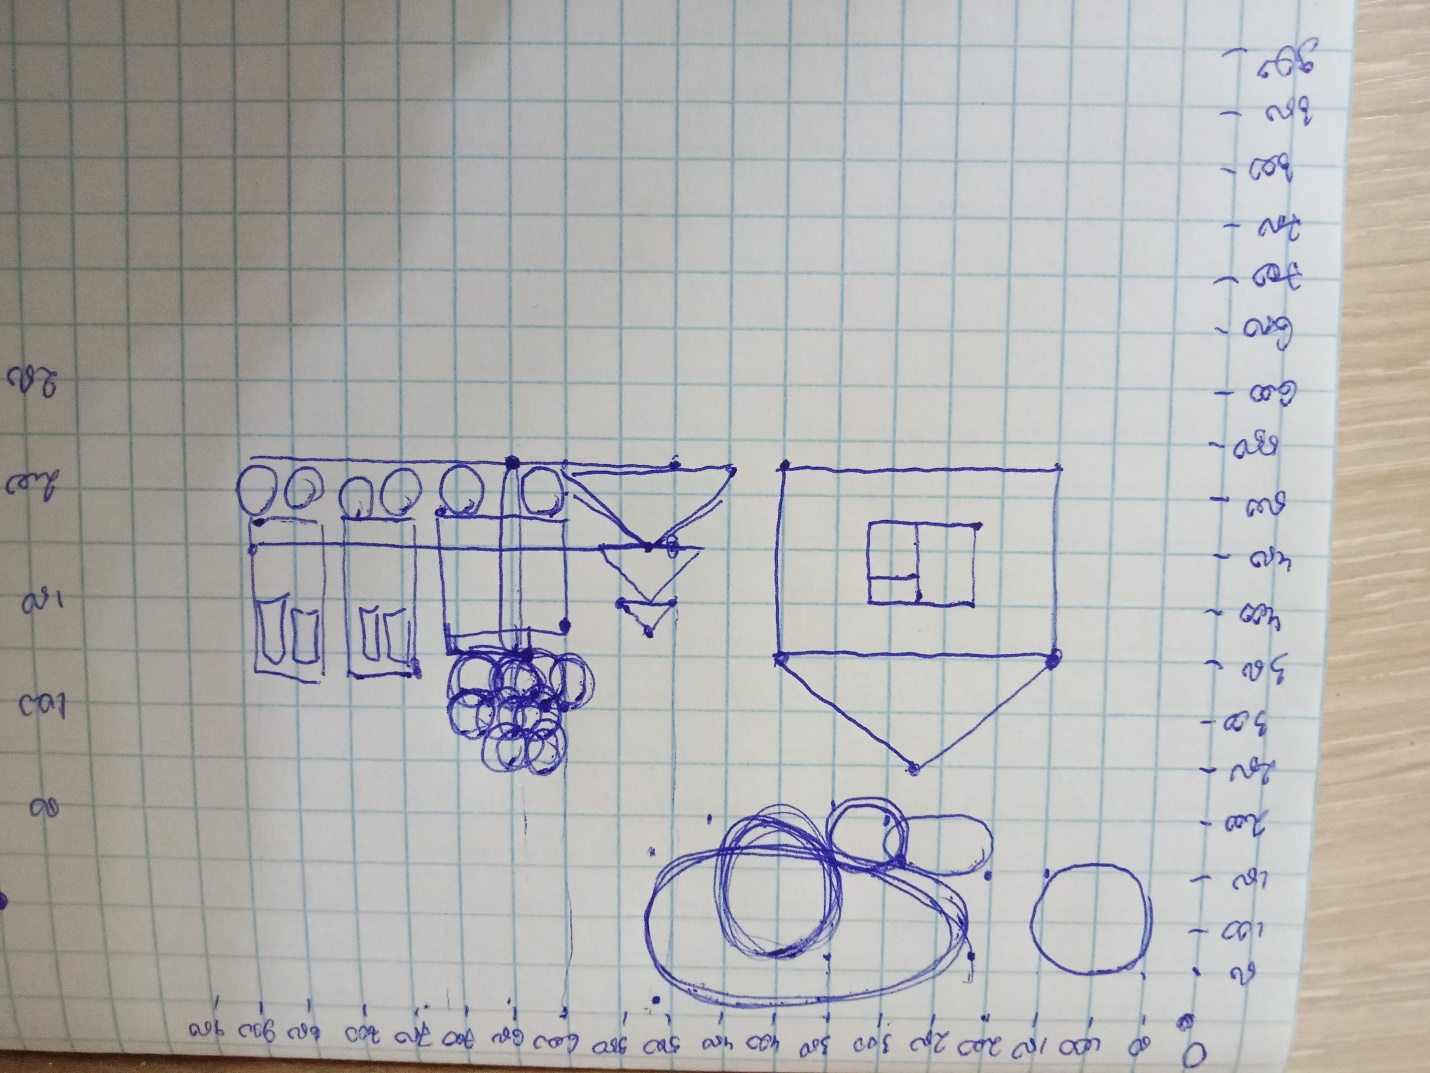 0 50 100 150 200 250 300 350 400 450 500 550 600 650 700 750 800 850 900 950
50
100
150
200
250
300
350
400
450
500
550
600
650
700
750
800
850
900
50
100
150
200
250